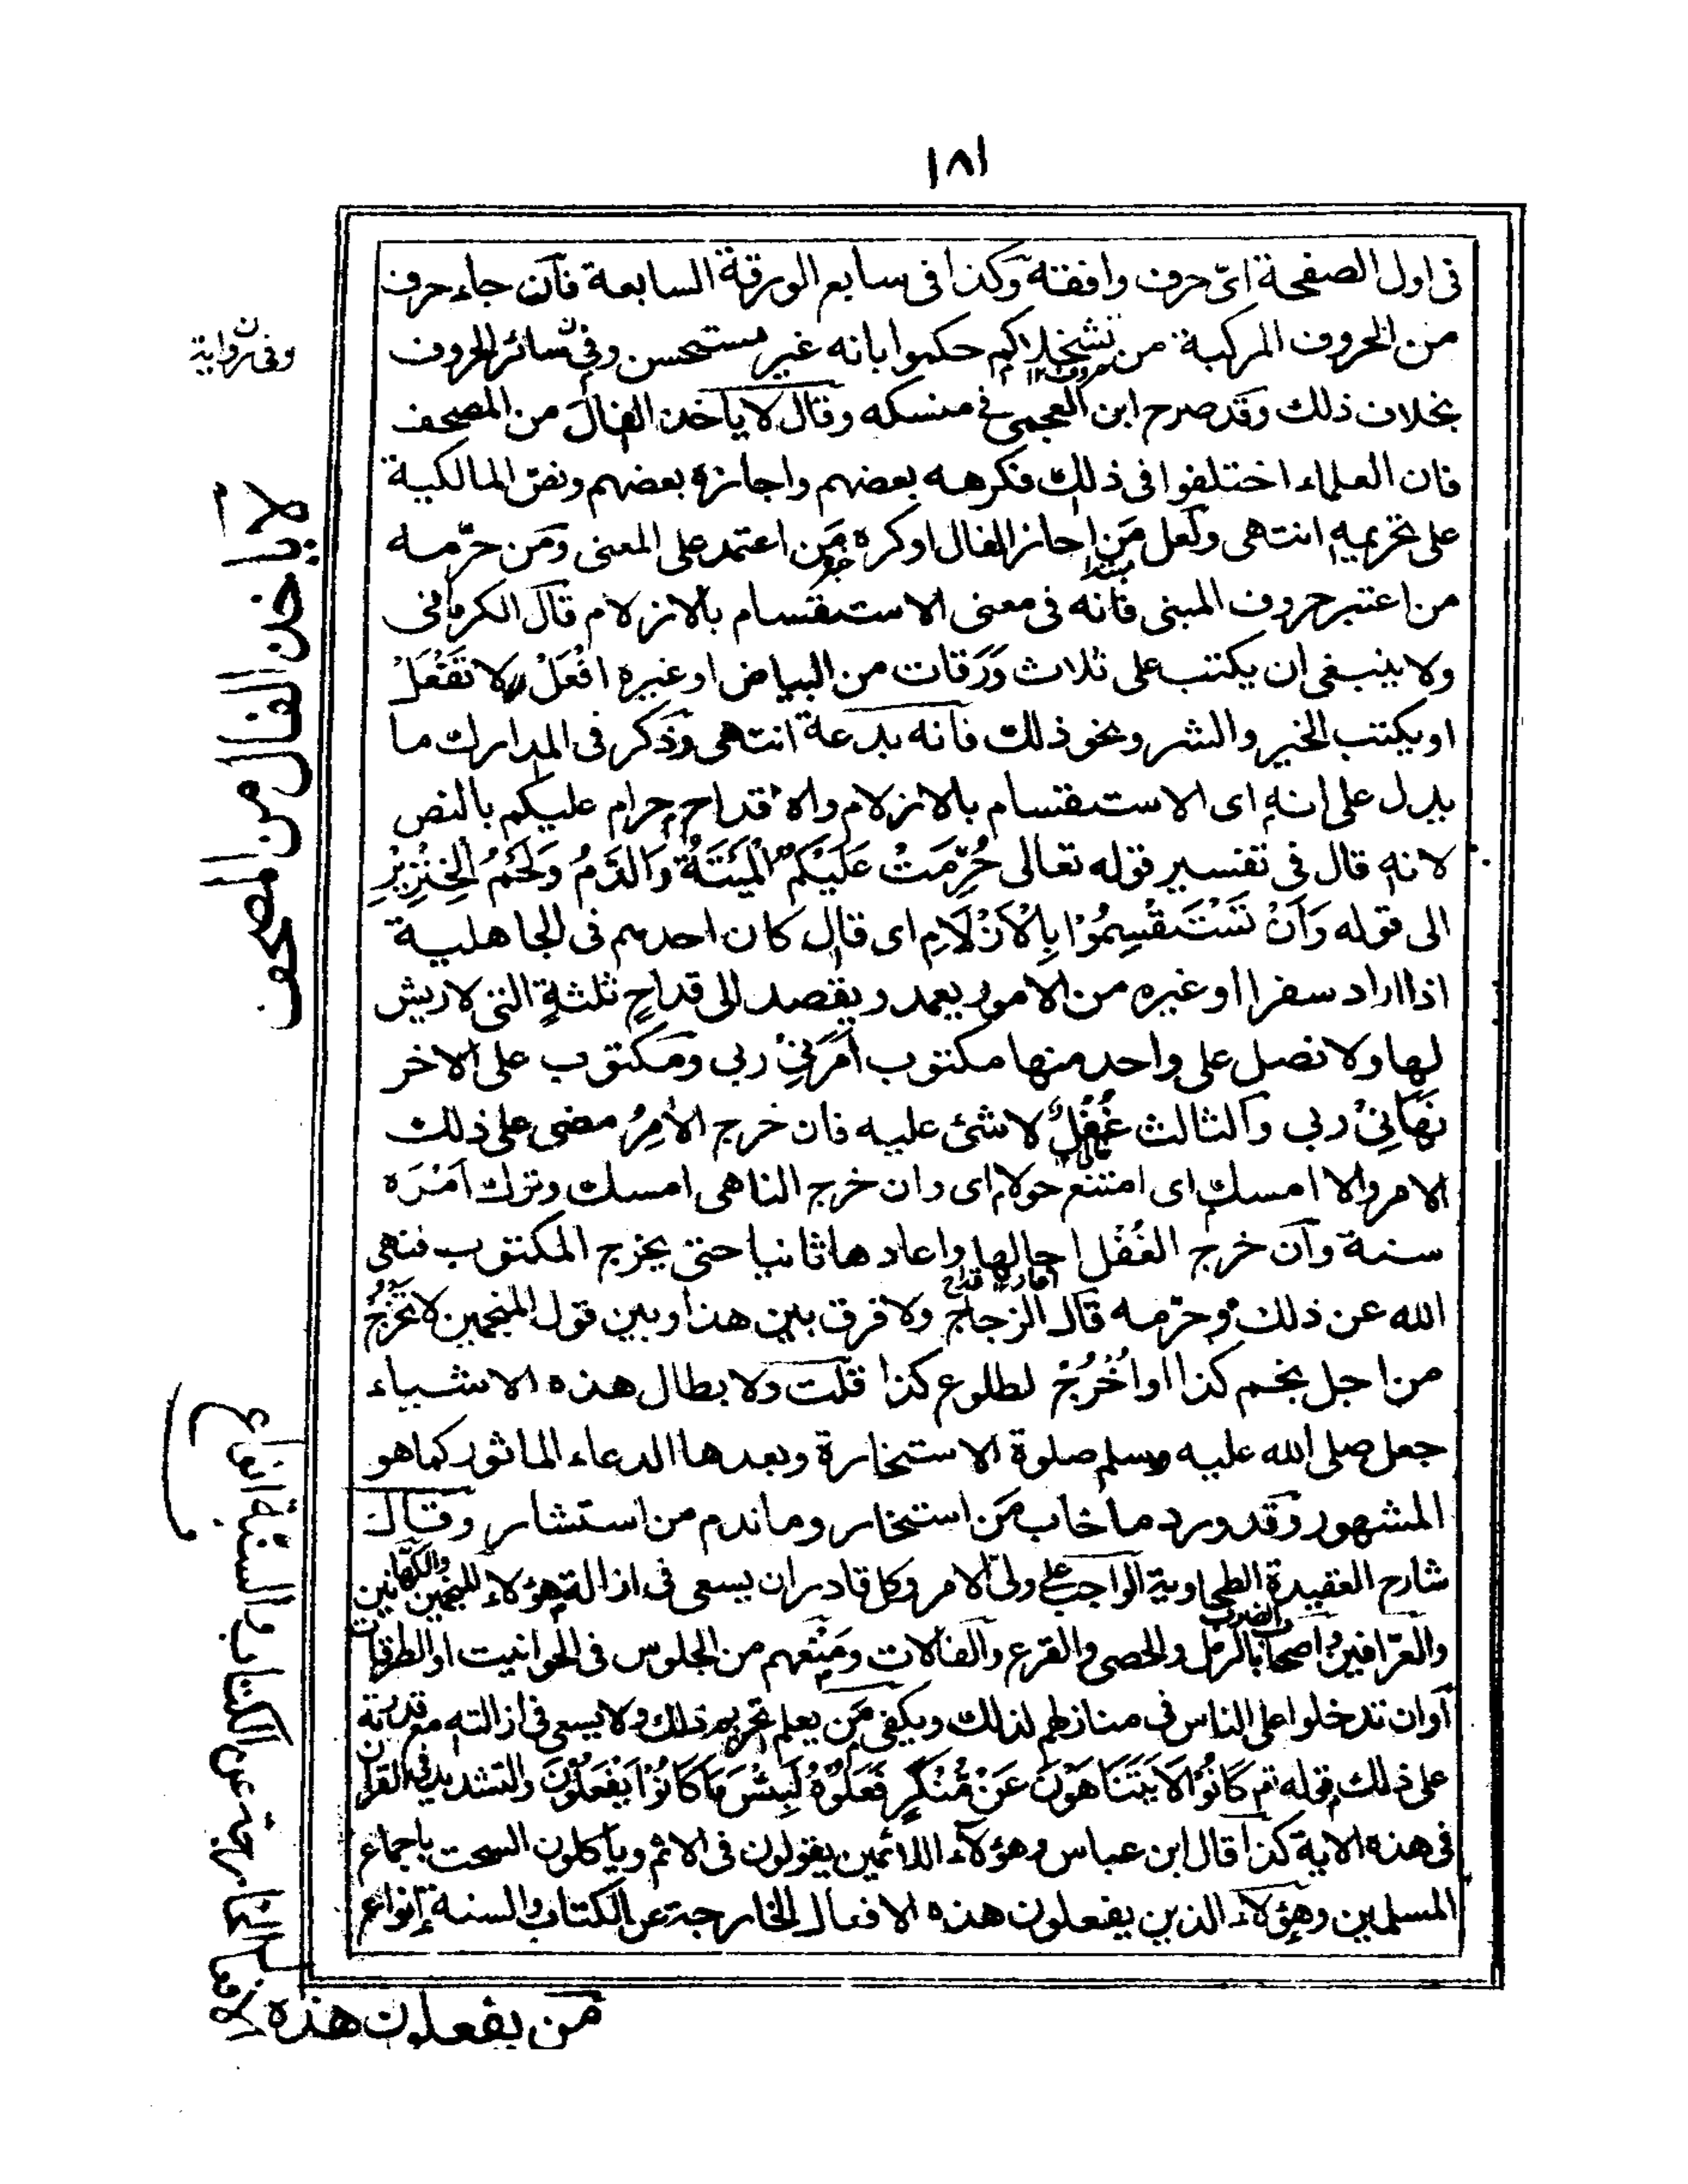 ١٨١
فى اول الصفحة اىّ حرف وافقته وكذا فى سابع الورقة السابعة فان جاء حرف
من الحروف المركبة من تشخلاكم حكموا بانه غير مستحسن وفى سائر الحروف
بخلاف ذلك وقد صرح ابن العجمى فى منسكه وقال لا ياخذ الفال من المصحف
فان العلماء اختلفوا فى ذلك فكرهه بعضهم واجازه بعضهم ونصّ المالكية
على تحريمه انتهى ولعل مَن اجاز الفال او كره مَن اعتمد على المعنى ومَن حرّمه
من اعتبر حروف المبنى فانه فى معنى الاستقسام بالازلام قال الكرمانى
ولا ينبغى ان يكتب على ثلاث وَرَقات من البياض او غيره افْعَلْ لا تَفْعَلْ
او يكتب الخير والشر ونحو ذلك فانه بدعة انتهى وذكر فى المدارك ما
يدل على انه اى الاستقسام بالازلام والاقداح حرام عليكم بالنص
لانه قال فى تفسير قوله تعالى حُرِّمَتْ عَلَيْكُمُ الْمَيْتَةُ وَالدَّمُ وَلَحْمُ الْخِنْزِيْرِ
الى قوله وَاَنْ تَسْتَقْسِمُوْا بِالْاَزْلَامِ اى قال كان احدهم فى الجاهلية
اذا اراد سفرا او غيره من الامور يعمد ويقصد الى قداحٍ ثلثةٍ التى لا ريش
لها ولا نصل على واحد منها مكتوب اَمَرَنِىْ ربى ومكتوب على الاخر
نَهَانِىْ ربى والثالث غُفْلٌ لا شئ عليه فان خرج الاٰمِرُ مضى على ذلك
الامر والا امسك اى امتنع حولا اى وان خرج الناهى امسك وترك اَمْرَه
سنة وان خرج الغُفْل اجالها واعادها ثانيا حتى يخرج المكتوب فنهى
الله عن ذلك وحرّمه قال الزجاج ولا فرق بين هذا وبين قول المنجمين لا تَخْرُجْ
من اجل نجم كذا او اُخْرُجْ لطلوع كذا قلت ولابطال هذه الاشياء
جعل صلى الله عليه وسلم صلوة الاستخارة وبعدها الدعاء الماثور كما هو
المشهور وقد ورد ما خاب مَن استخار وما ندم من استشار وقال
شارح العقيدة الطحاوية الواجب على ولى الامر وكل قادر ان يسعى فى ازالة هؤلاء المنجمين والكهّانين
والعرّافين واصحاب الرمل والحصى والقرع والفالات ومَنْعهم من الجلوس فى الحوانيت او الطرقات
او ان تدخلوا على الناس فى منازلهم لذلك ويكفى مَن يعلم تحريم ذلك ولا يسعى فى ازالته مع قدرته
على ذلك قوله تم كَانُوْا لَا يَتَنَاهَوْنَ عَنْ مُّنْكَرٍ فَعَلُوْهُ لَبِئْسَ مَا كَانُوْا يَفْعَلُوْنَ والتشديد فى القران
فى هذه الاية كذا قال ابن عباس وهؤلاء اللائمين يقولون فى الاثم وياكلون السحت باجماع
المسلمين وهؤلاء الذين يفعلون هذه الافعال الخارجة عن الكتاب والسنة انواع
وفى رواية
لا ياخذ الفال من المصحف
من يفعلون هذه الافعال الخارجة عن الكتاب والسنة انواع